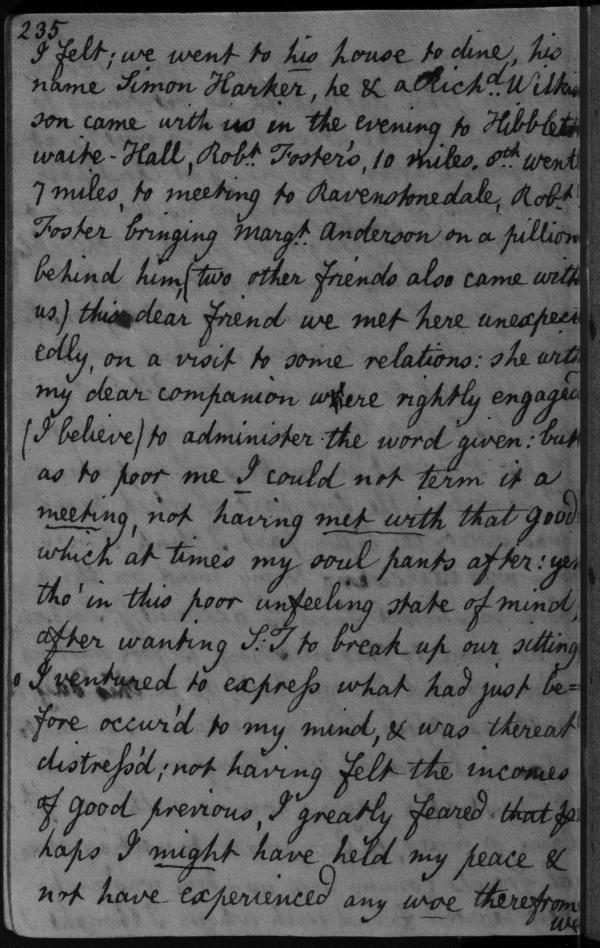 235
I felt; we went to his house to dine, his
name Simon Harker, he & a Richd. Wilkin
son came with us in the evening to Hibblet
waite-Hall, Robt. Foster's, 10 miles. 8th went
7 miles, to meeting to Ravenstonedale, Robt.
Foster bringing Margt. Anderson on a pillion
behind him, (two other friends also came with
us.) this dear friend we met here unexpect
edly, on a visit to some relations: she with
my dear companion were rightly engaged
(I believe) to administer the word given: but
as to poor me I could not term it a
meeting, not having met with that good
which at times my soul pants after: yet
tho' in this poor unfeeling state of mind,
after wanting S:T. to break up our sitting
I ventured to express what had just be=
fore occur'd to my mind, & was thereat
distress'd; not having felt the incomes
of good previous, I greatly feared that pe
haps I might have held my peace &
not have experienced any woe therefrom
we